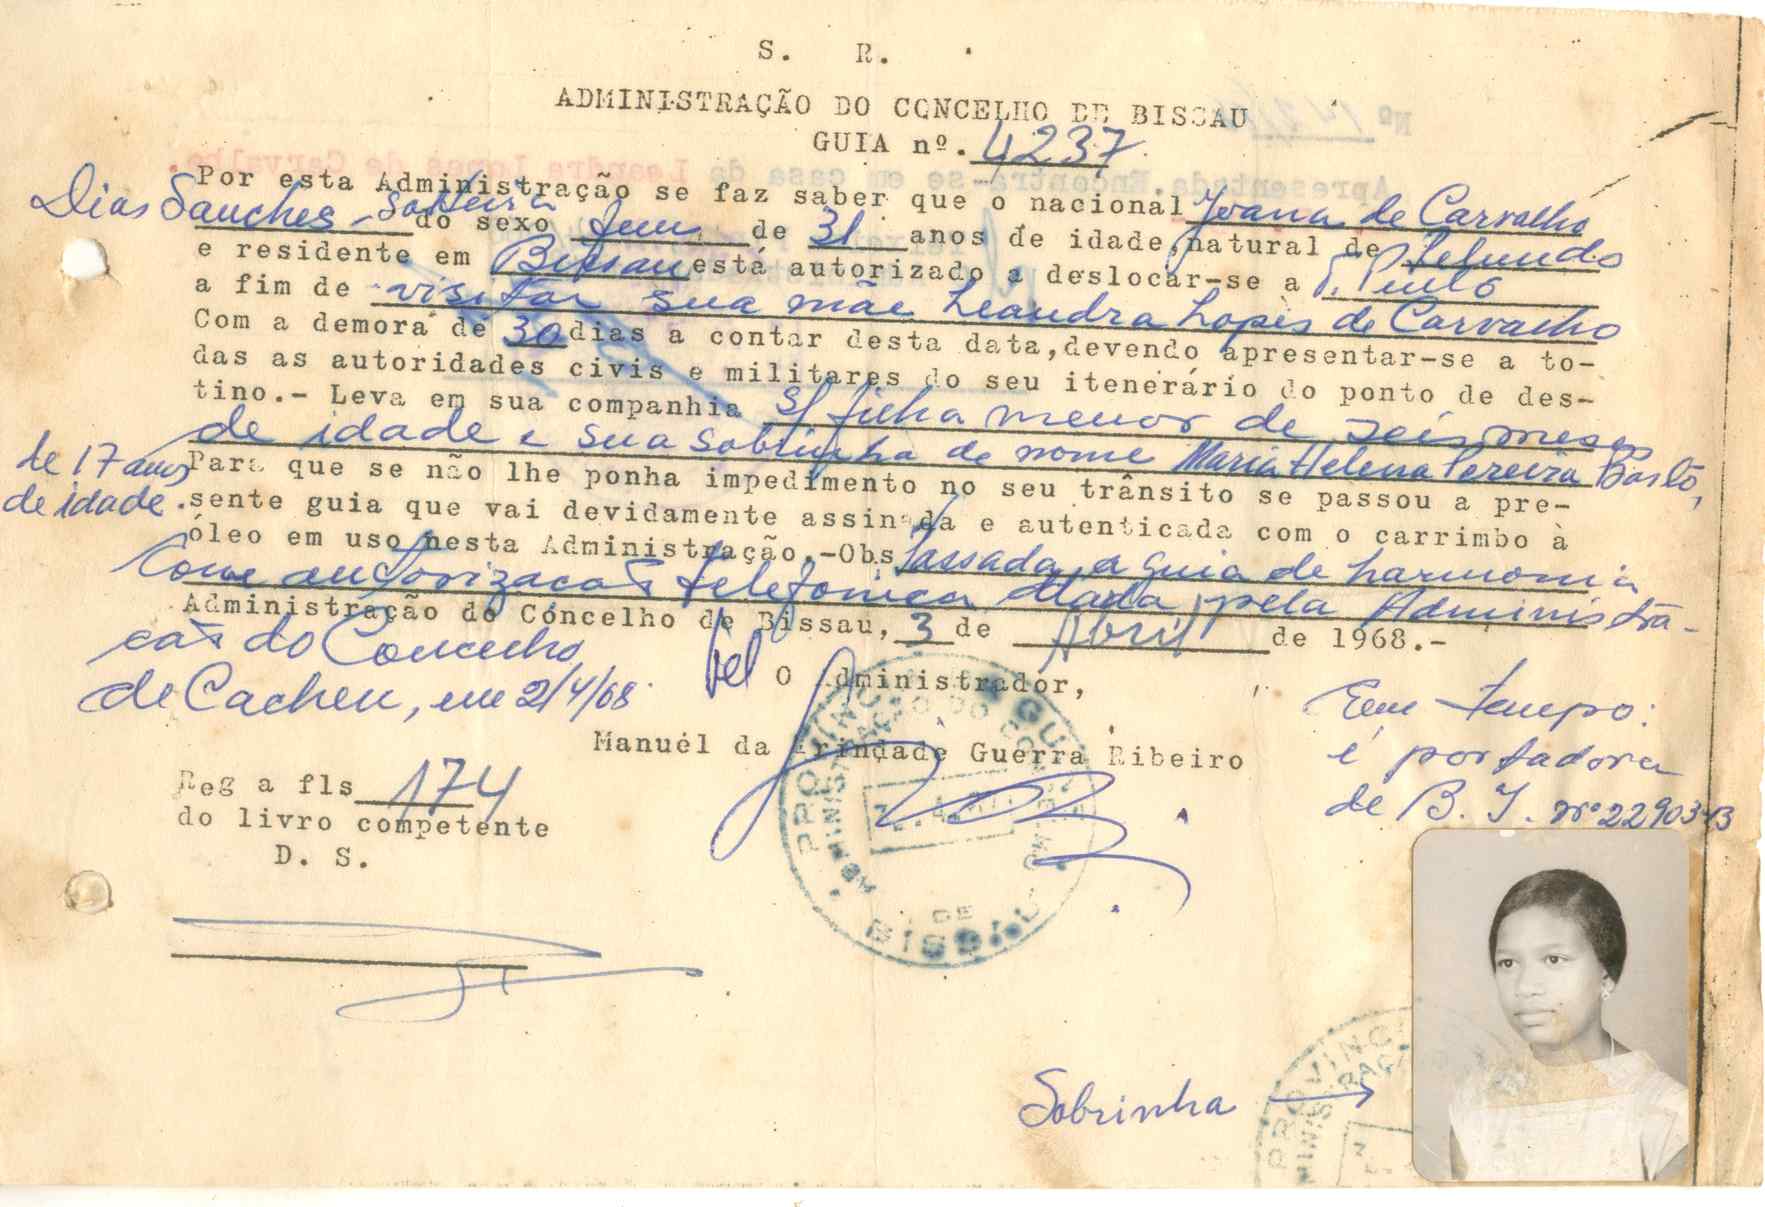 S. R.
ADMINISTRAÇÃO DO CONCELHO DE BISSAU
GUIA nº. 4237
Por esta Administração se faz saber que o nacional Joana de Carvalho
Dias Sanches - Solteira do sexo fem. de 31 anos de idade, natural de Pelundo
e residente em Bissau está autorizado a deslocar-se a
a fim de visitar sua mãe Leandra Lopes de Carvalho
Com a demora de 30 dias a contar desta data, devendo apresentar-se a to-
das as autoridades civis e militares do seu itenerário do ponto de des-
tino.- Leva em sua companhia s/ filha menor de seis meses
de idade e sua sobrinha de nome Maria Helena Pereira Barbo,
de 17 anos
de idade.
Para que se não lhe ponha impedimento no seu trânsito se passou a pre-
sente guia que vai devidamente assinada e autenticada com o carrimbo à
óleo em uso nesta Administração.-Obs Passada a guia de harmonia
com autorizacão telefonica dada pela Administra-
Administração do Concelho de Bissau, 3 de Abril de 1968.-
cão do Concelho
de Cacheu, em 2/4/68.
O Administrador,
Manuel da Trindade Guerra Ribeiro
Em tempo:
é portadora
de B. I. nº
Reg a fls 174
do livro competente
D. S.
PROVINC GU
ADMINISTRAÇÃO DO CO
DE
BISSAU
Sobrinha
PROVINC